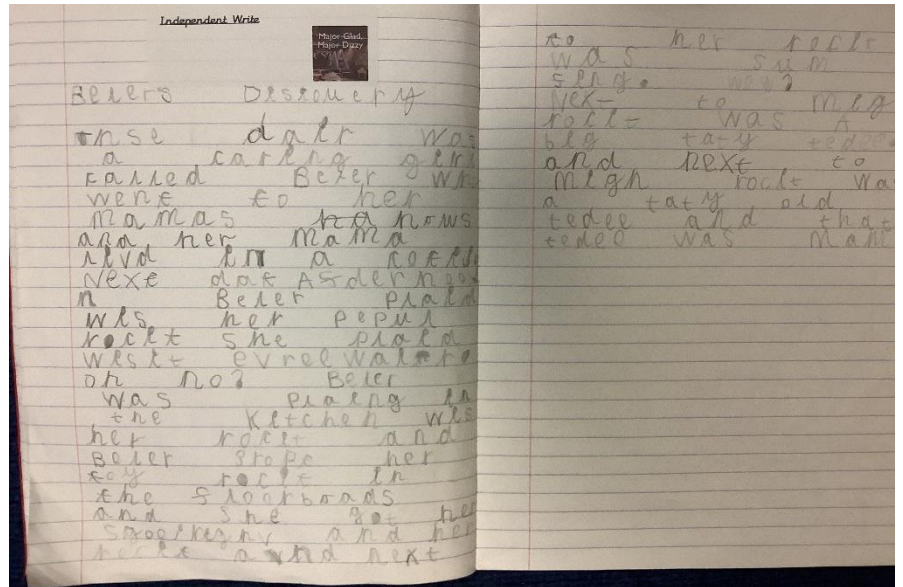 Independent Write
Major Glad,
Major Dizzy
Belers Discouery
onse dalr was
a careing gerl
called Beler wh
went to her
mamas hows
and her mama
livd in a cotels
Next dat Asdernoo
n Beler plald
wis her pepul
roclt she plald
wislt evreewalere
oh no? Beler
was plaing in
the Kitchen wis
her roclt and
Beler grope her
toy roclt in
the floorboads
and she got her
and her
roclt and next
to her roclt
was sum
seng. wew?
Next to meg
roclt was A
big taty tedee
and next to
megh roclt wa
a taty old
tedee and that
tedee was mani